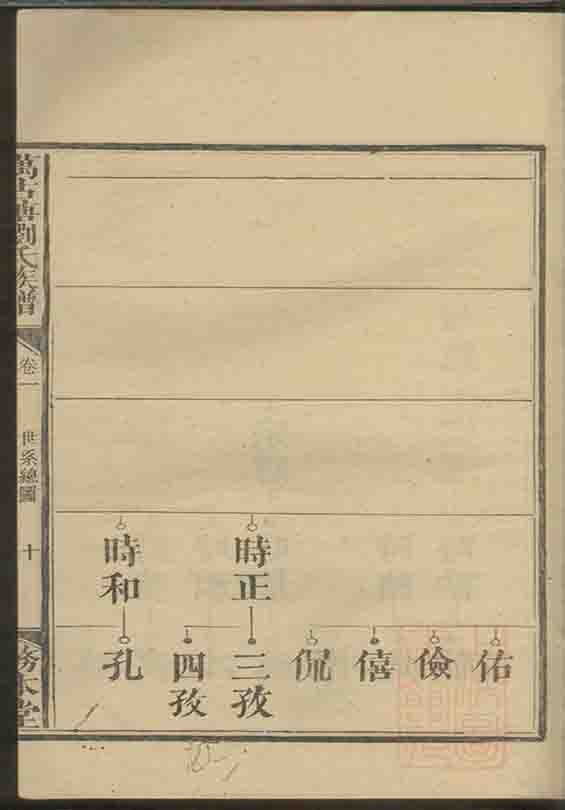 佑
儉
僖
侃
時正
三孜
四孜
時和
孔
萬古塘劉氏族譜
卷一
世系總圖
十
務本堂